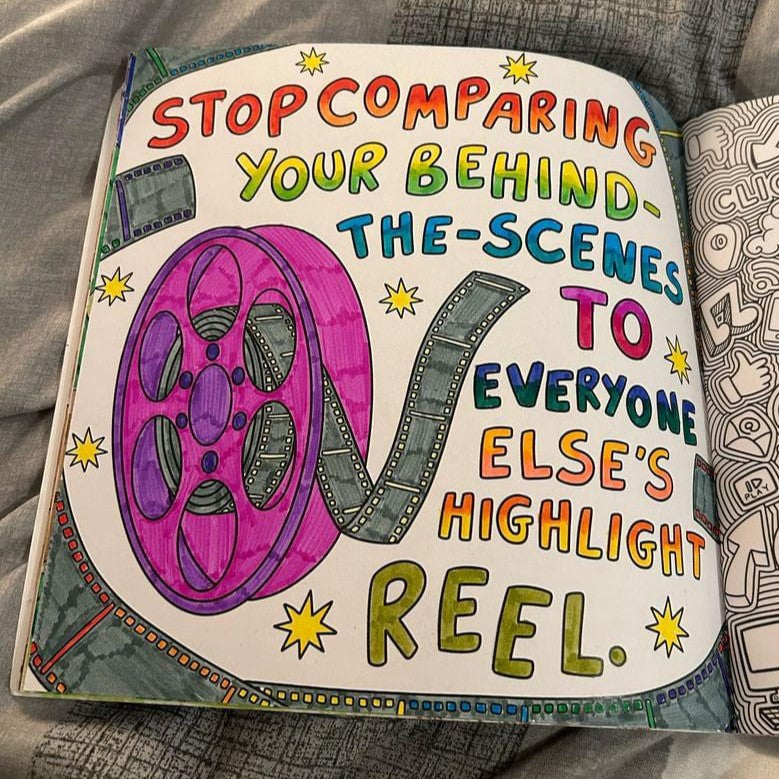 STOP COMPARING
YOUR BEHIND-
THE-SCENES
TO
EVERYONE
ELSE'S
HIGHLIGHT
REEL.
CLIC
PLAY